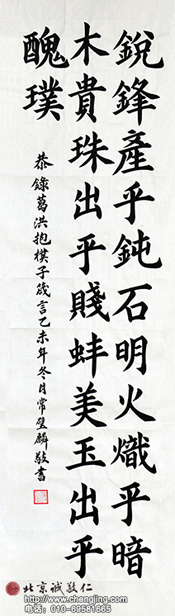 銳鋒產乎鈍石明火熾乎暗
木貴珠出乎賤蚌美玉出乎
醜璞
恭錄葛洪抱樸子箴言乙未年冬月常豎麟敬書
北京诚敬仁
http://www.chengjing.com
电话:010-69561865